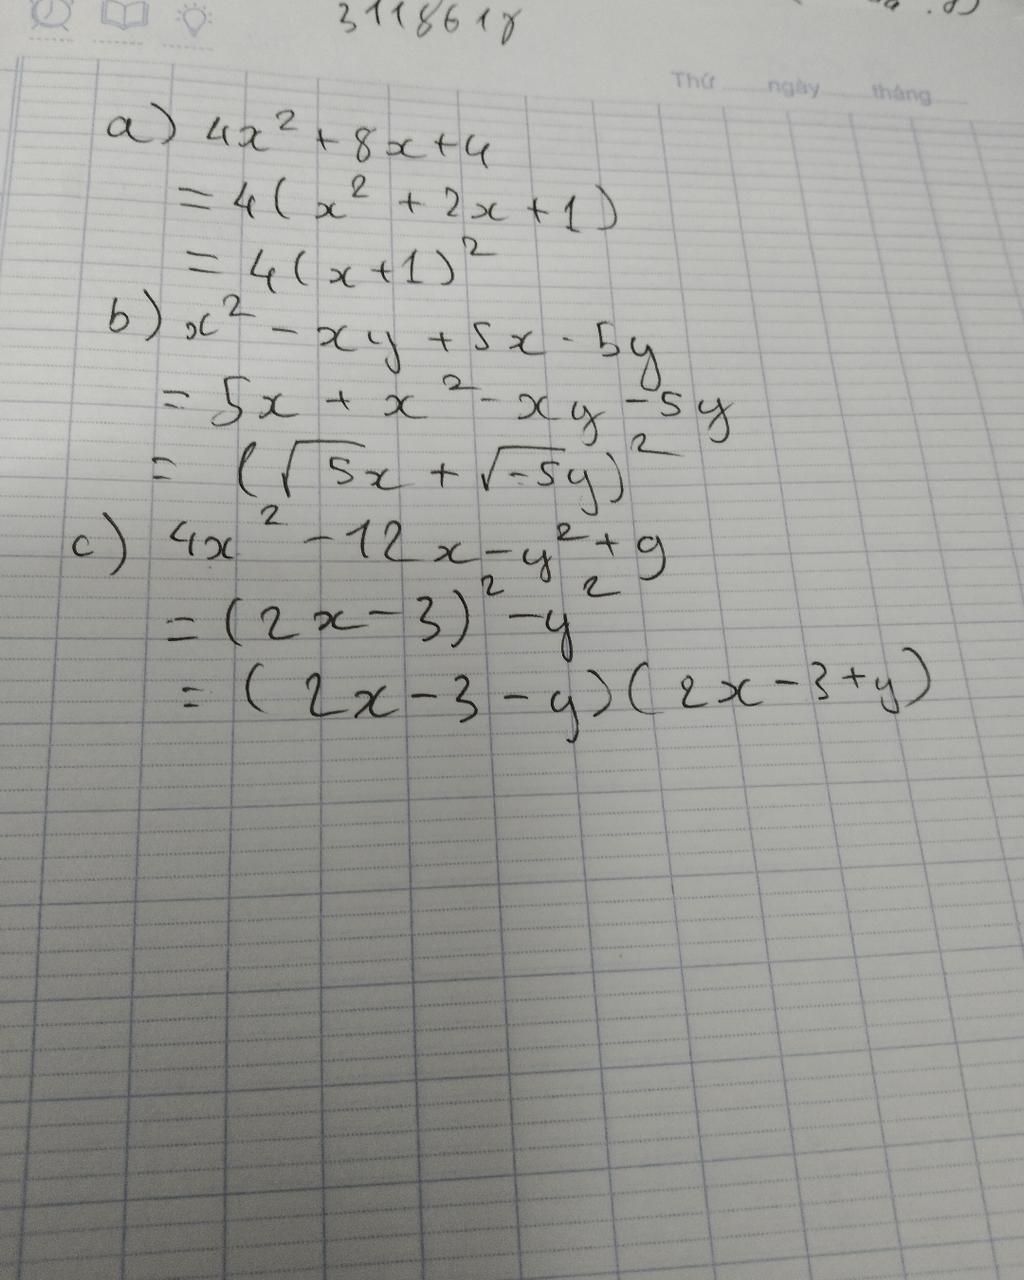 3118618
Thứ ngày tháng
a) 4x² + 8x + 4
= 4(x² + 2x + 1)
= 4(x + 1)²
b) x² - xy + 5x - 5y
= 5x + x² - xy - 5y
= (√5x + √-5y)²
c) 4x² - 12x - y² + 9
= (2x - 3)² - y²
= (2x - 3 - y)(2x - 3 + y)